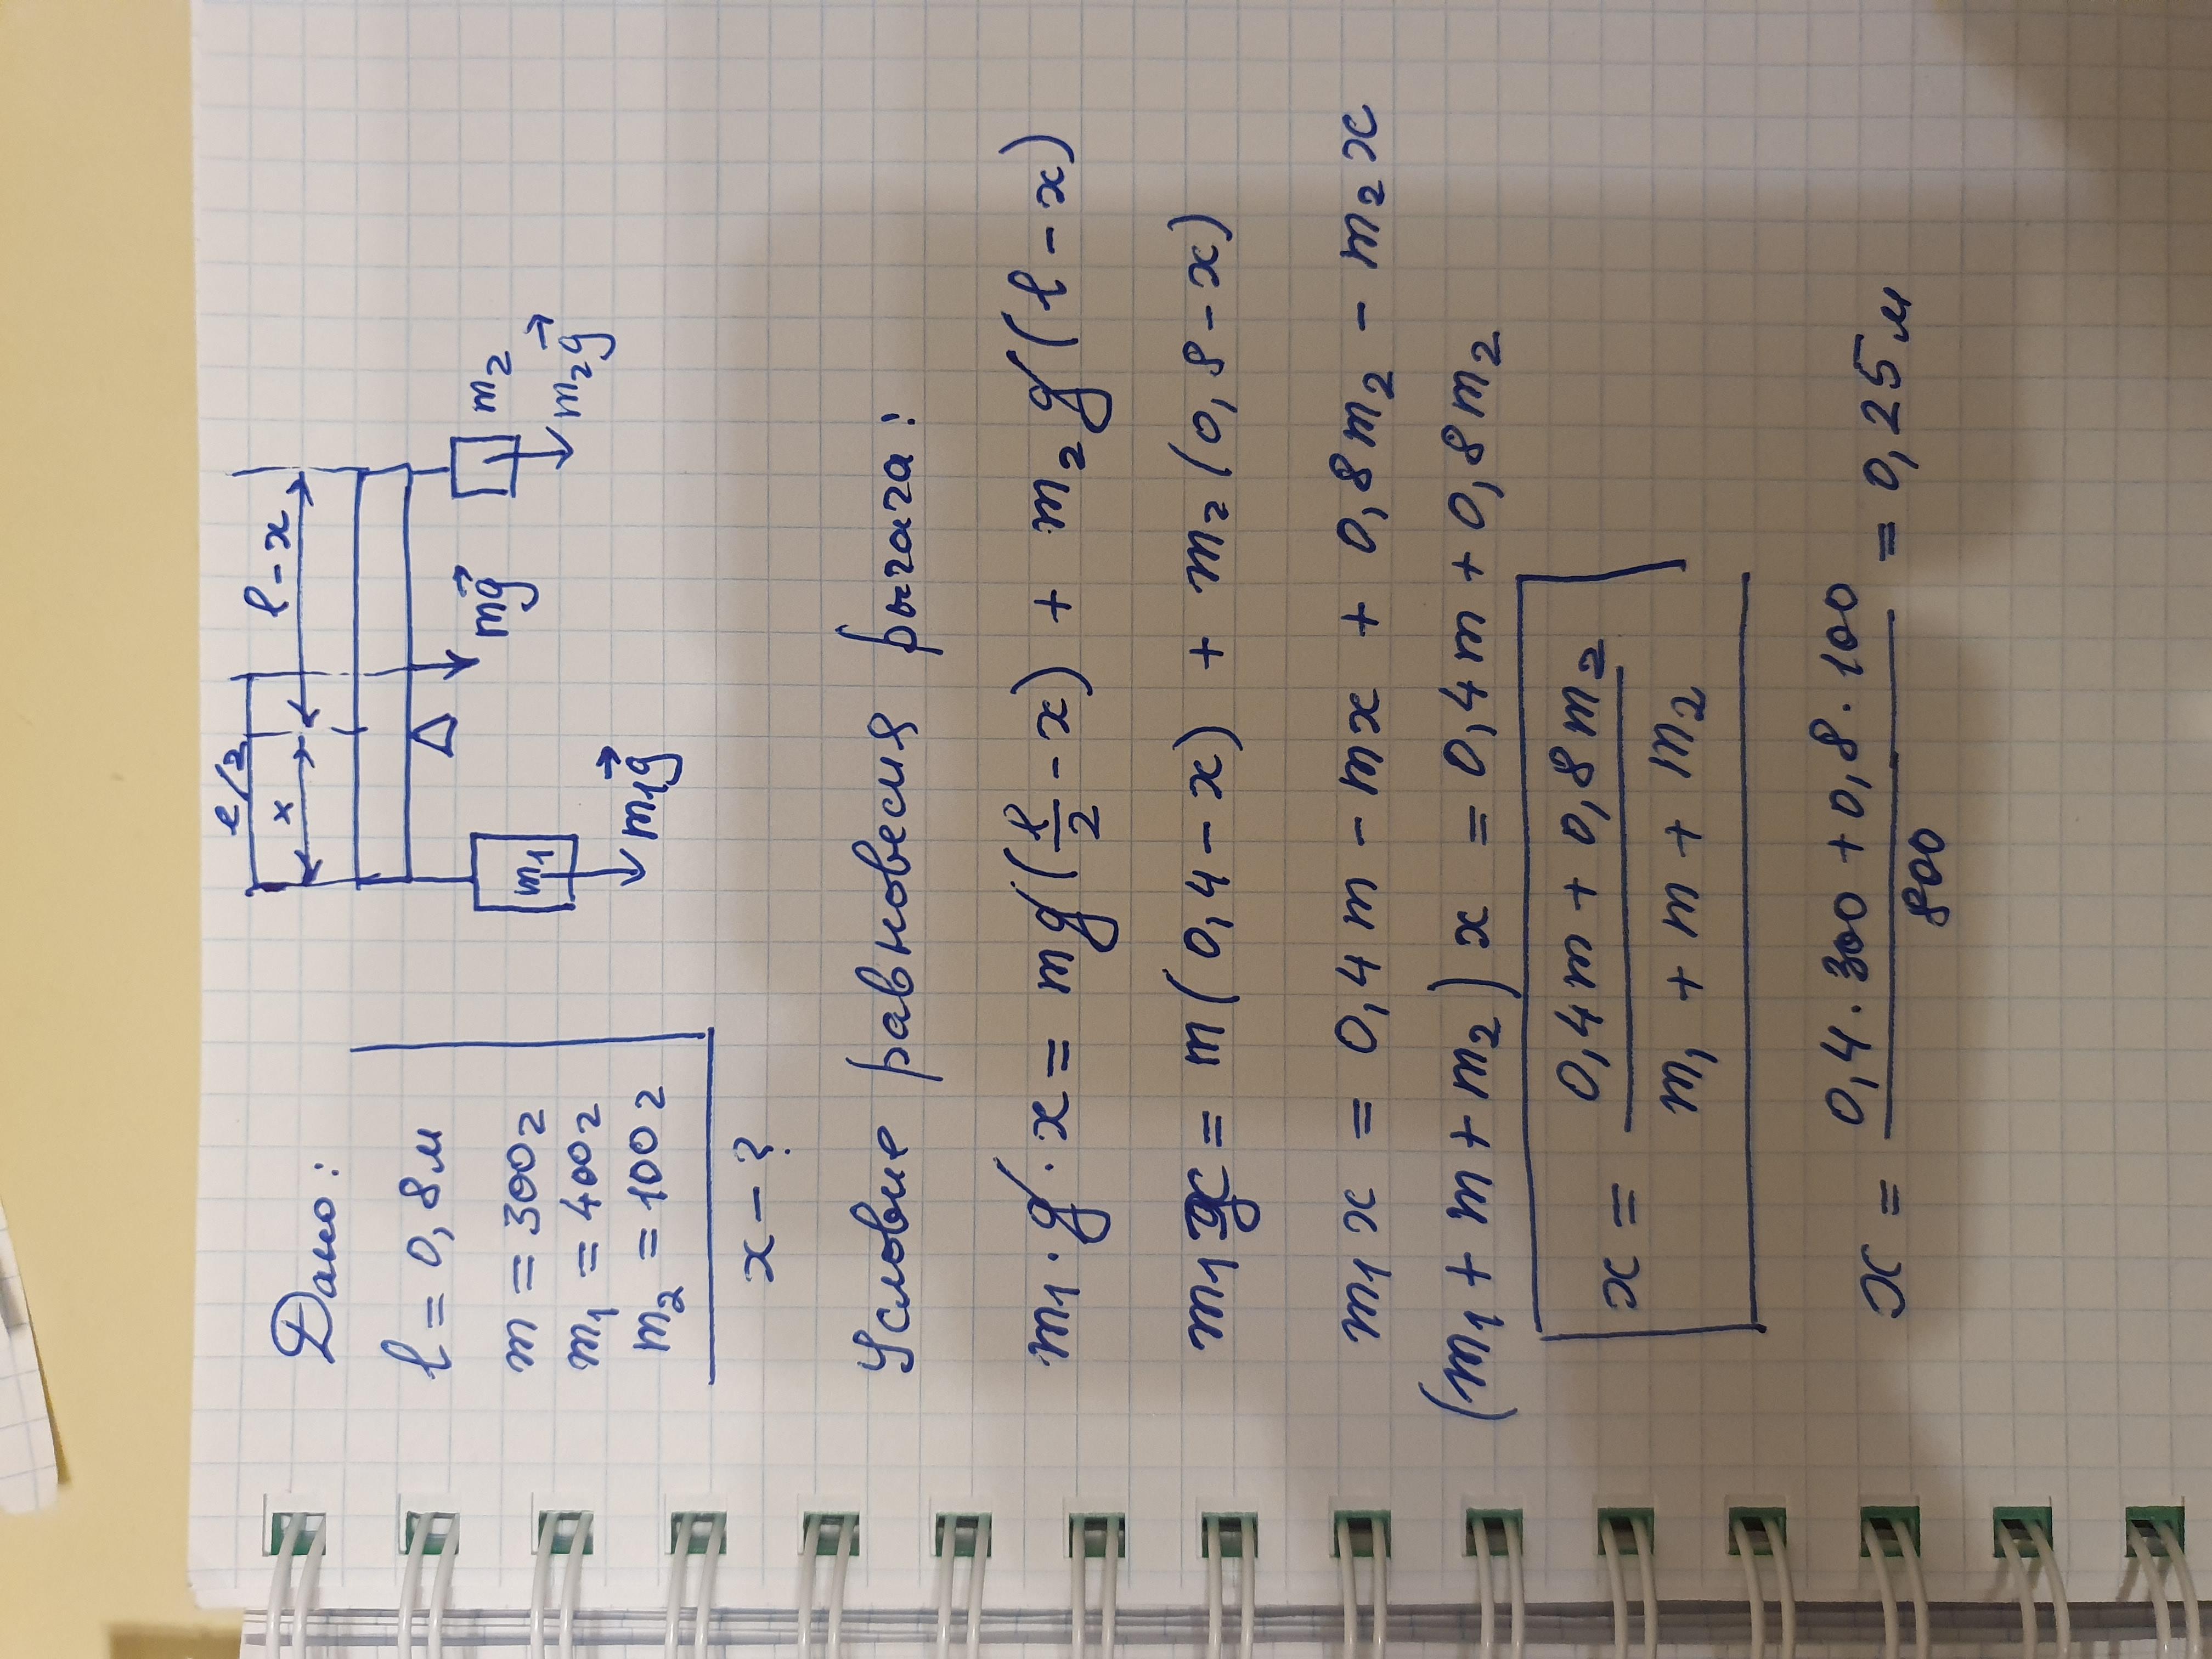 Дано:
l = 0,8м
m = 300г
m₁ = 400г
m₂ = 100г
x - ?
l/2
x
l - x
m₁
m₂
mg⃗
m₂g⃗
m₁g⃗
Условие равновесия рычага:
m₁·g·x = mg(l/2 - x) + m₂g(l - x)
m₁x = m(0,4 - x) + m₂(0,8 - x)
m₁x = 0,4m - mx + 0,8m₂ - m₂x
(m₁ + m + m₂)x = 0,4m + 0,8m₂
x = (0,4m + 0,8m₂)/(m₁ + m + m₂)
x = (0,4·300 + 0,8·100)/800 = 0,25м